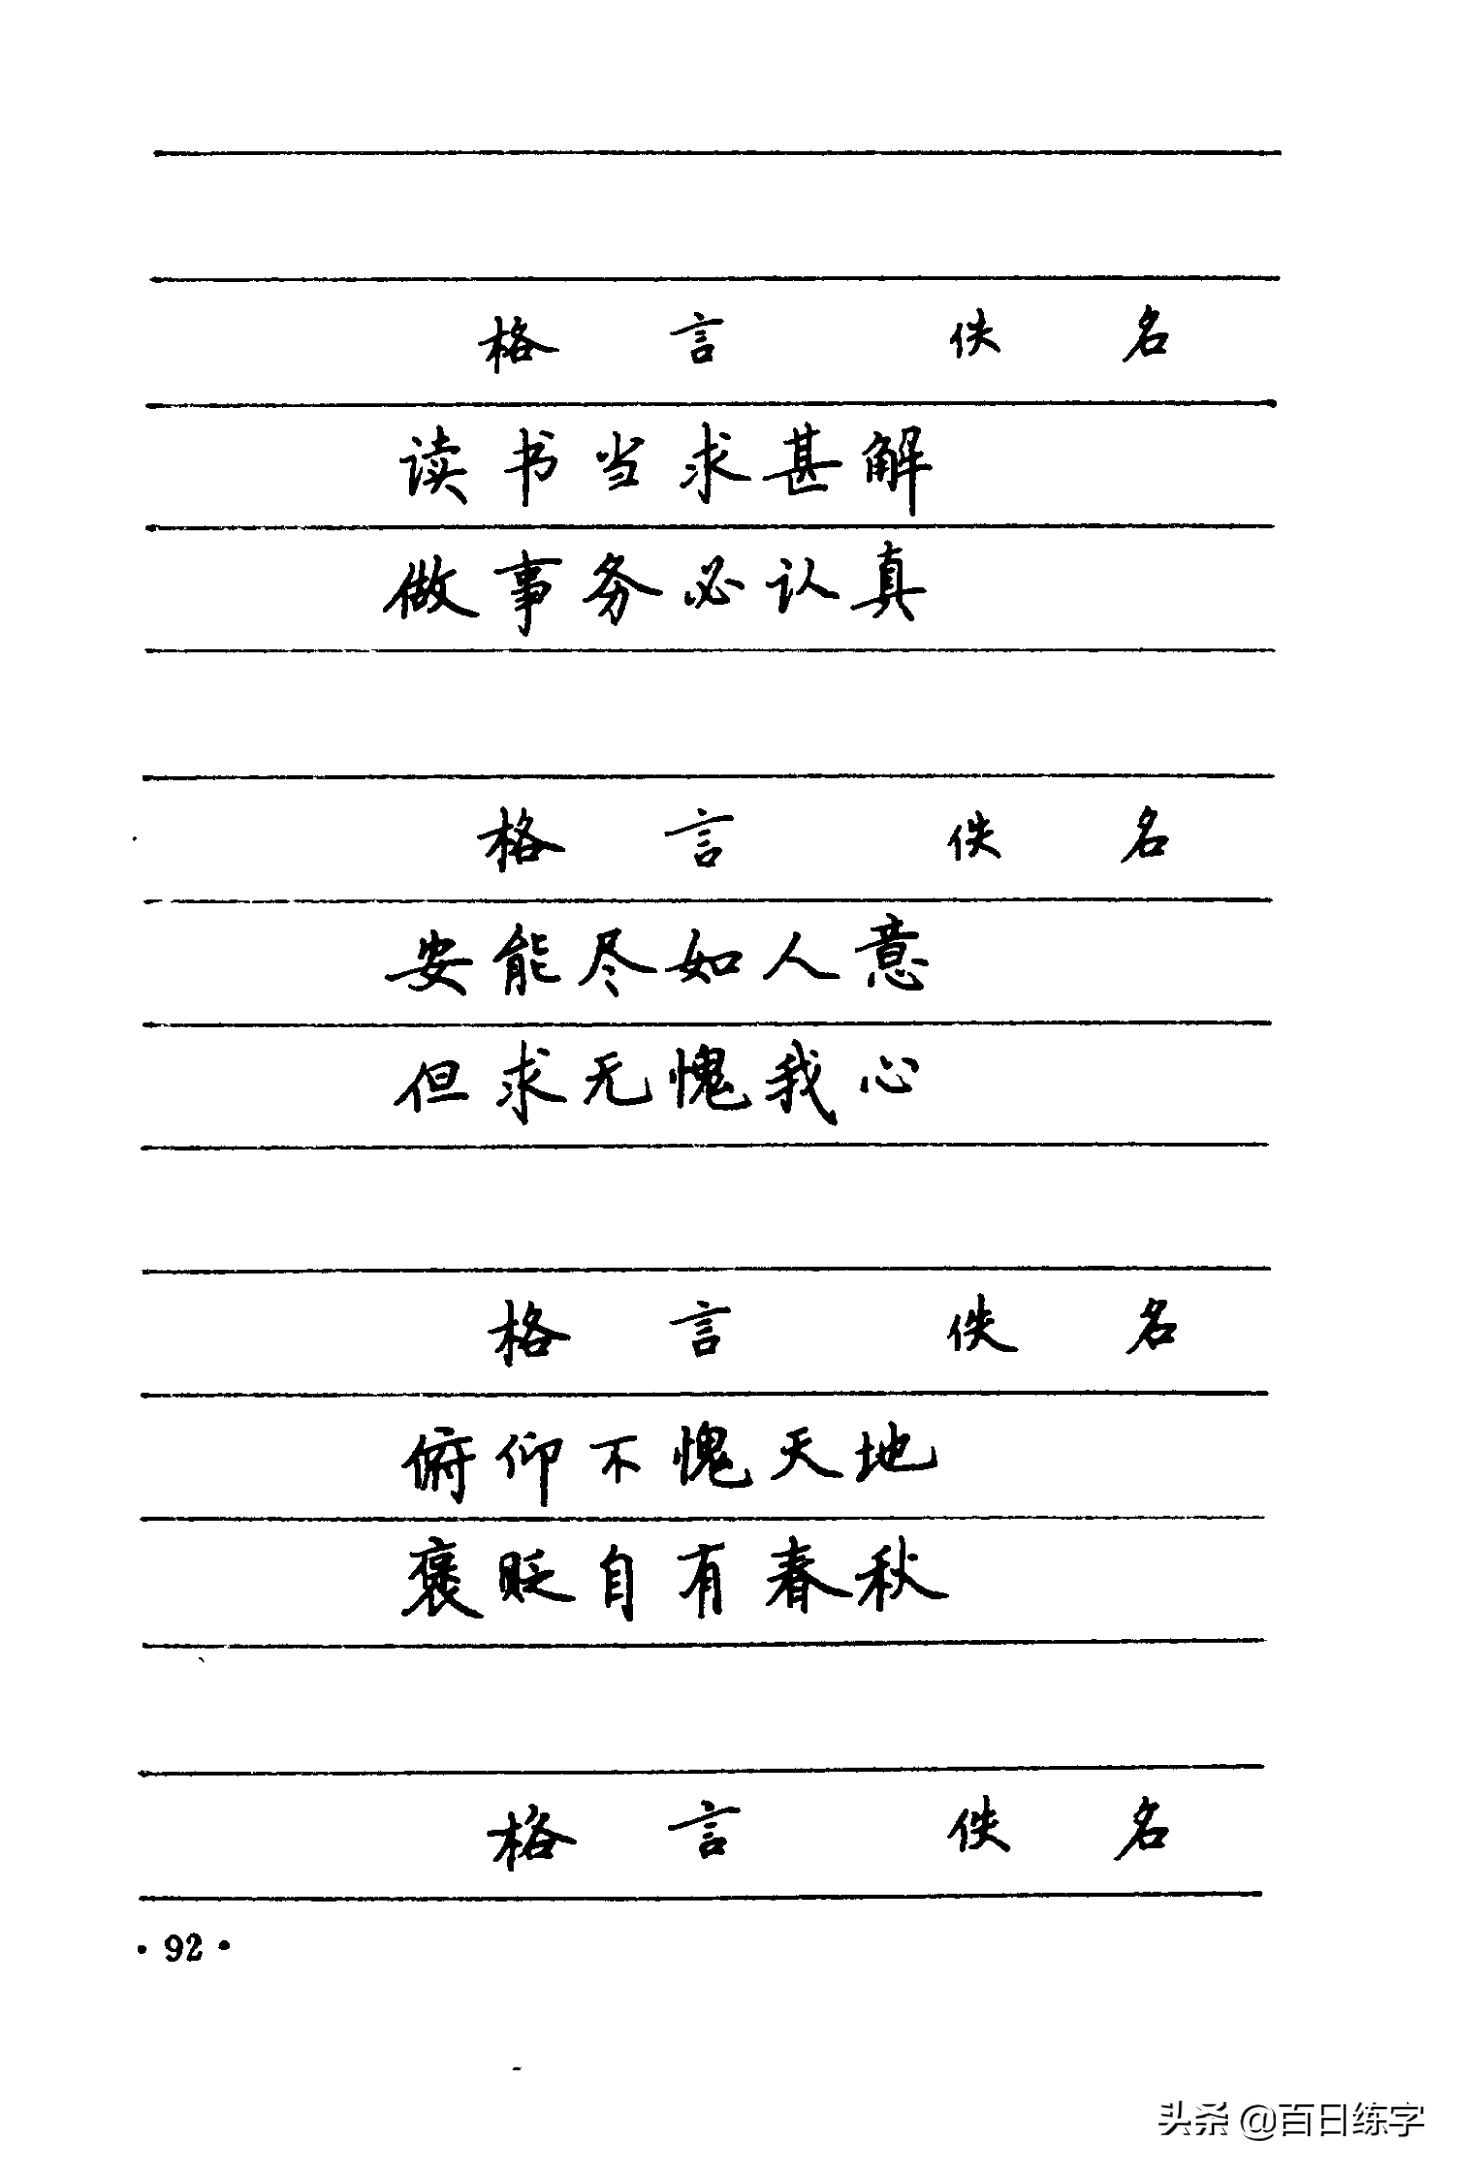 格言 佚名
读书当求甚解
做事务必认真
格言 佚名
安能尽如人意
但求无愧我心
格言 佚名
俯仰不愧天地
褒贬自有春秋
格言 佚名
·92·
头条 @百日练字